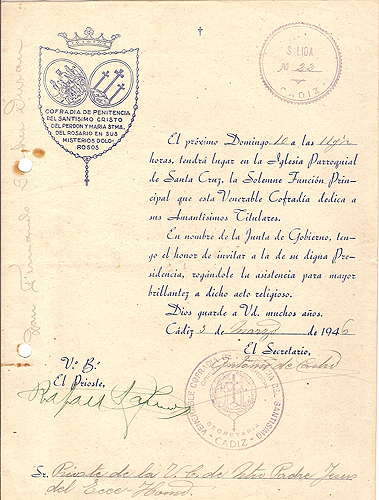 S. LIDA
Nº 22
CADIZ
COFRADIA DE PENITENCIA
DEL SANTISIMO CRISTO
DEL PERDON Y MARIA STMA.
DEL ROSARIO EN SUS
MISTERIOS DOLO-
ROSOS
El próximo Domingo 10 a las 11 y ½
horas, tendrá lugar en la Iglesia Parroquial
de Santa Cruz, la Solemne Función Prin-
cipal que esta Venerable Cofradía dedica a
sus Amantísimos Titulares.
En nombre de la Junta de Gobierno, ten-
go el honor de invitar a la de su digna Pre-
sidencia, rogándole la asistencia para mayor
brillantez a dicho acto religioso.
Dios guarde a Vd. muchos años.
Cádiz 3 de marzo de 1946
El Secretario,
Antonio de
V.º B.º
El Prioste,
Rafael
VENERABLE COFRADIA DEL SANTISIMO
SECRETARIA
CADIZ
Sr. Prioste de la V. C. de Ntro Padre Jesus
del Ecce-Homo.
Don Fernando Duran